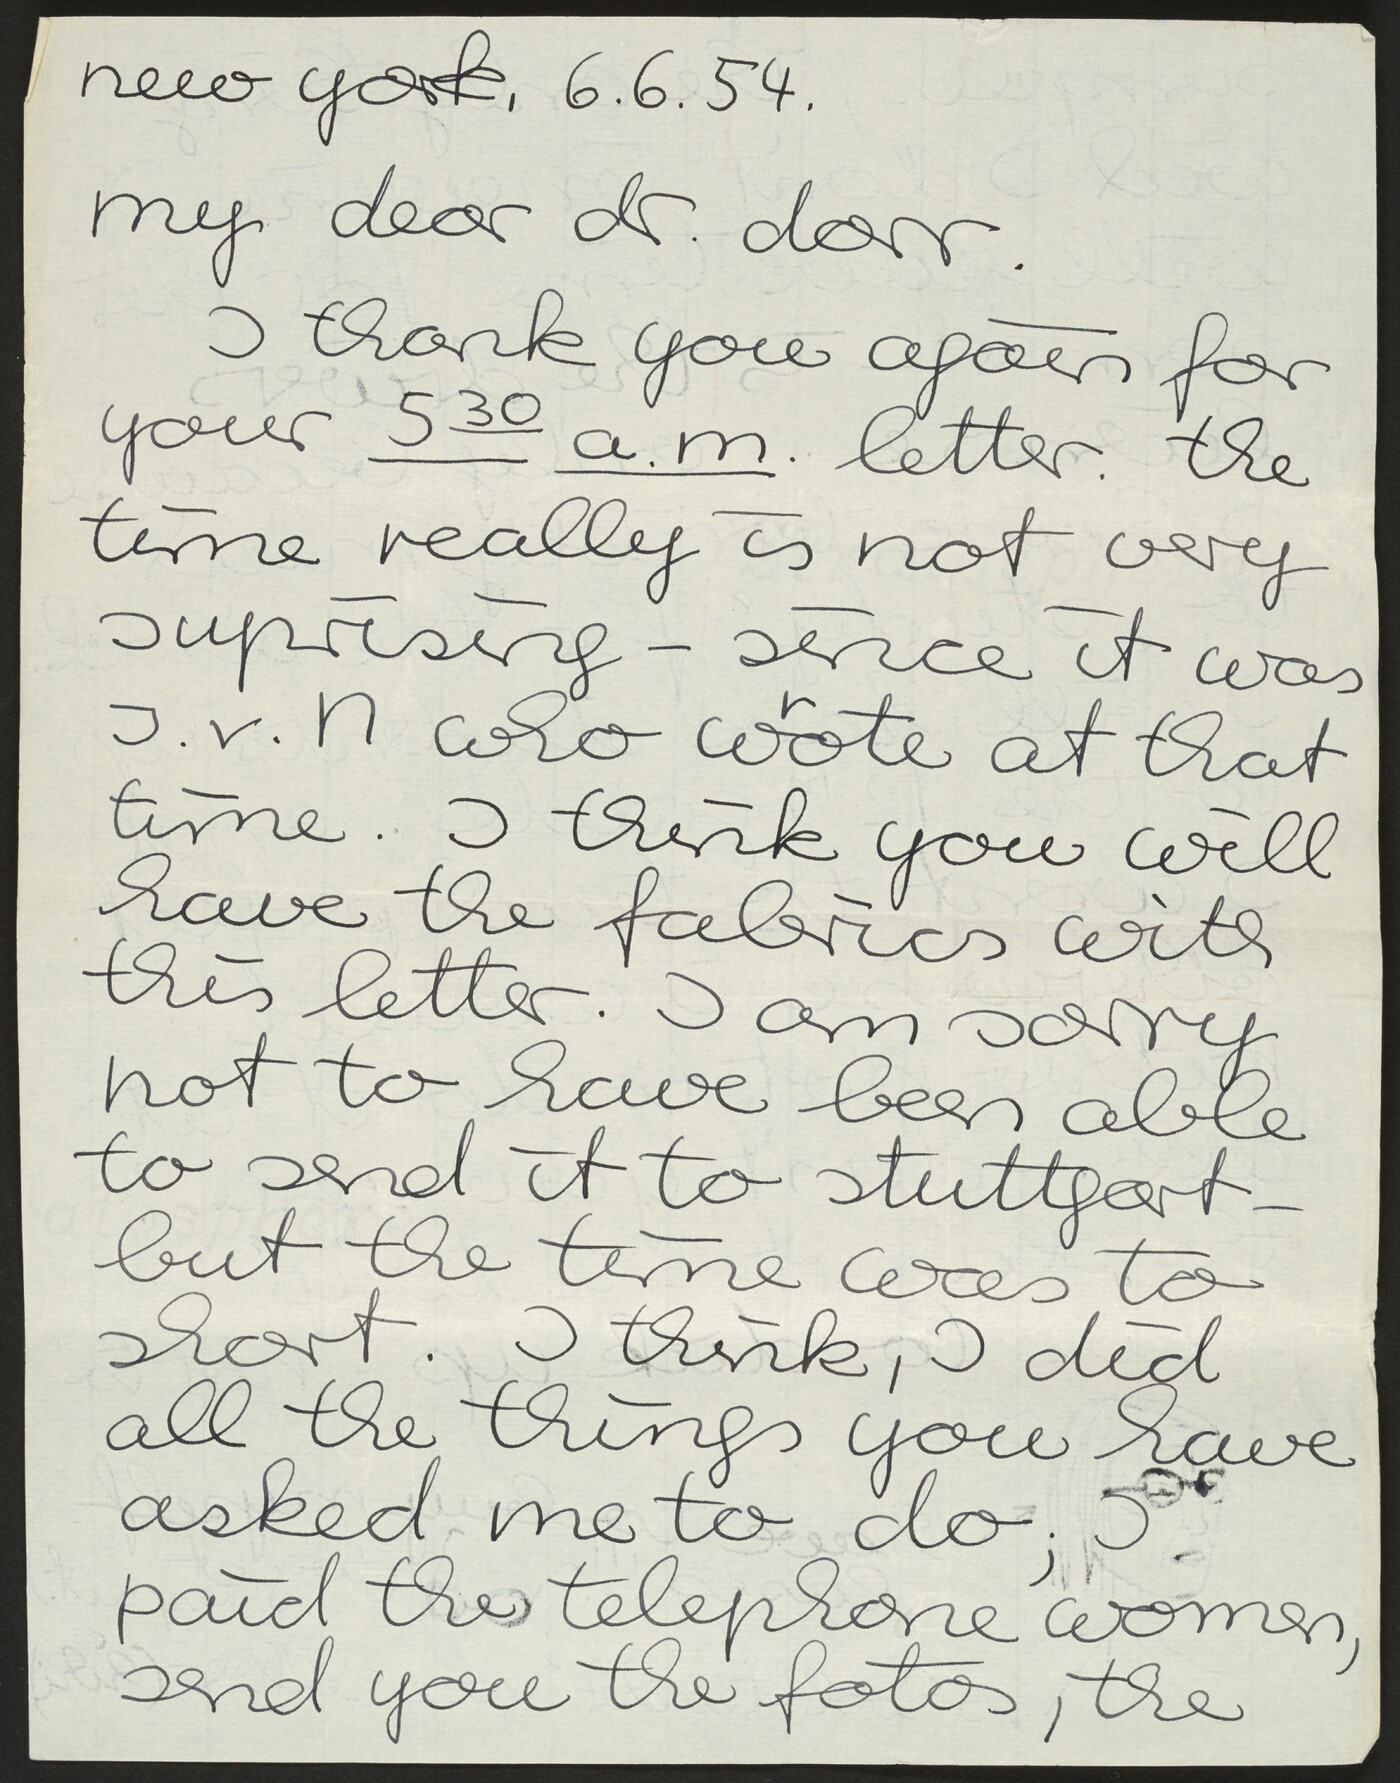 new york, 6.6.54.
my dear dr. dorr.
I thank you again for
your 5 30 a.m. letter. the
time really is not very
suprising – since it was
I. v. N who wrote at that
time. I think you will
have the fabrics with
this letter. I am sorry
not to have been able
to send it to stuttgart –
but the time was to
short. I think, I did
all the things you have
asked me to do; I
paid the telephone women,
send you the fotos, the